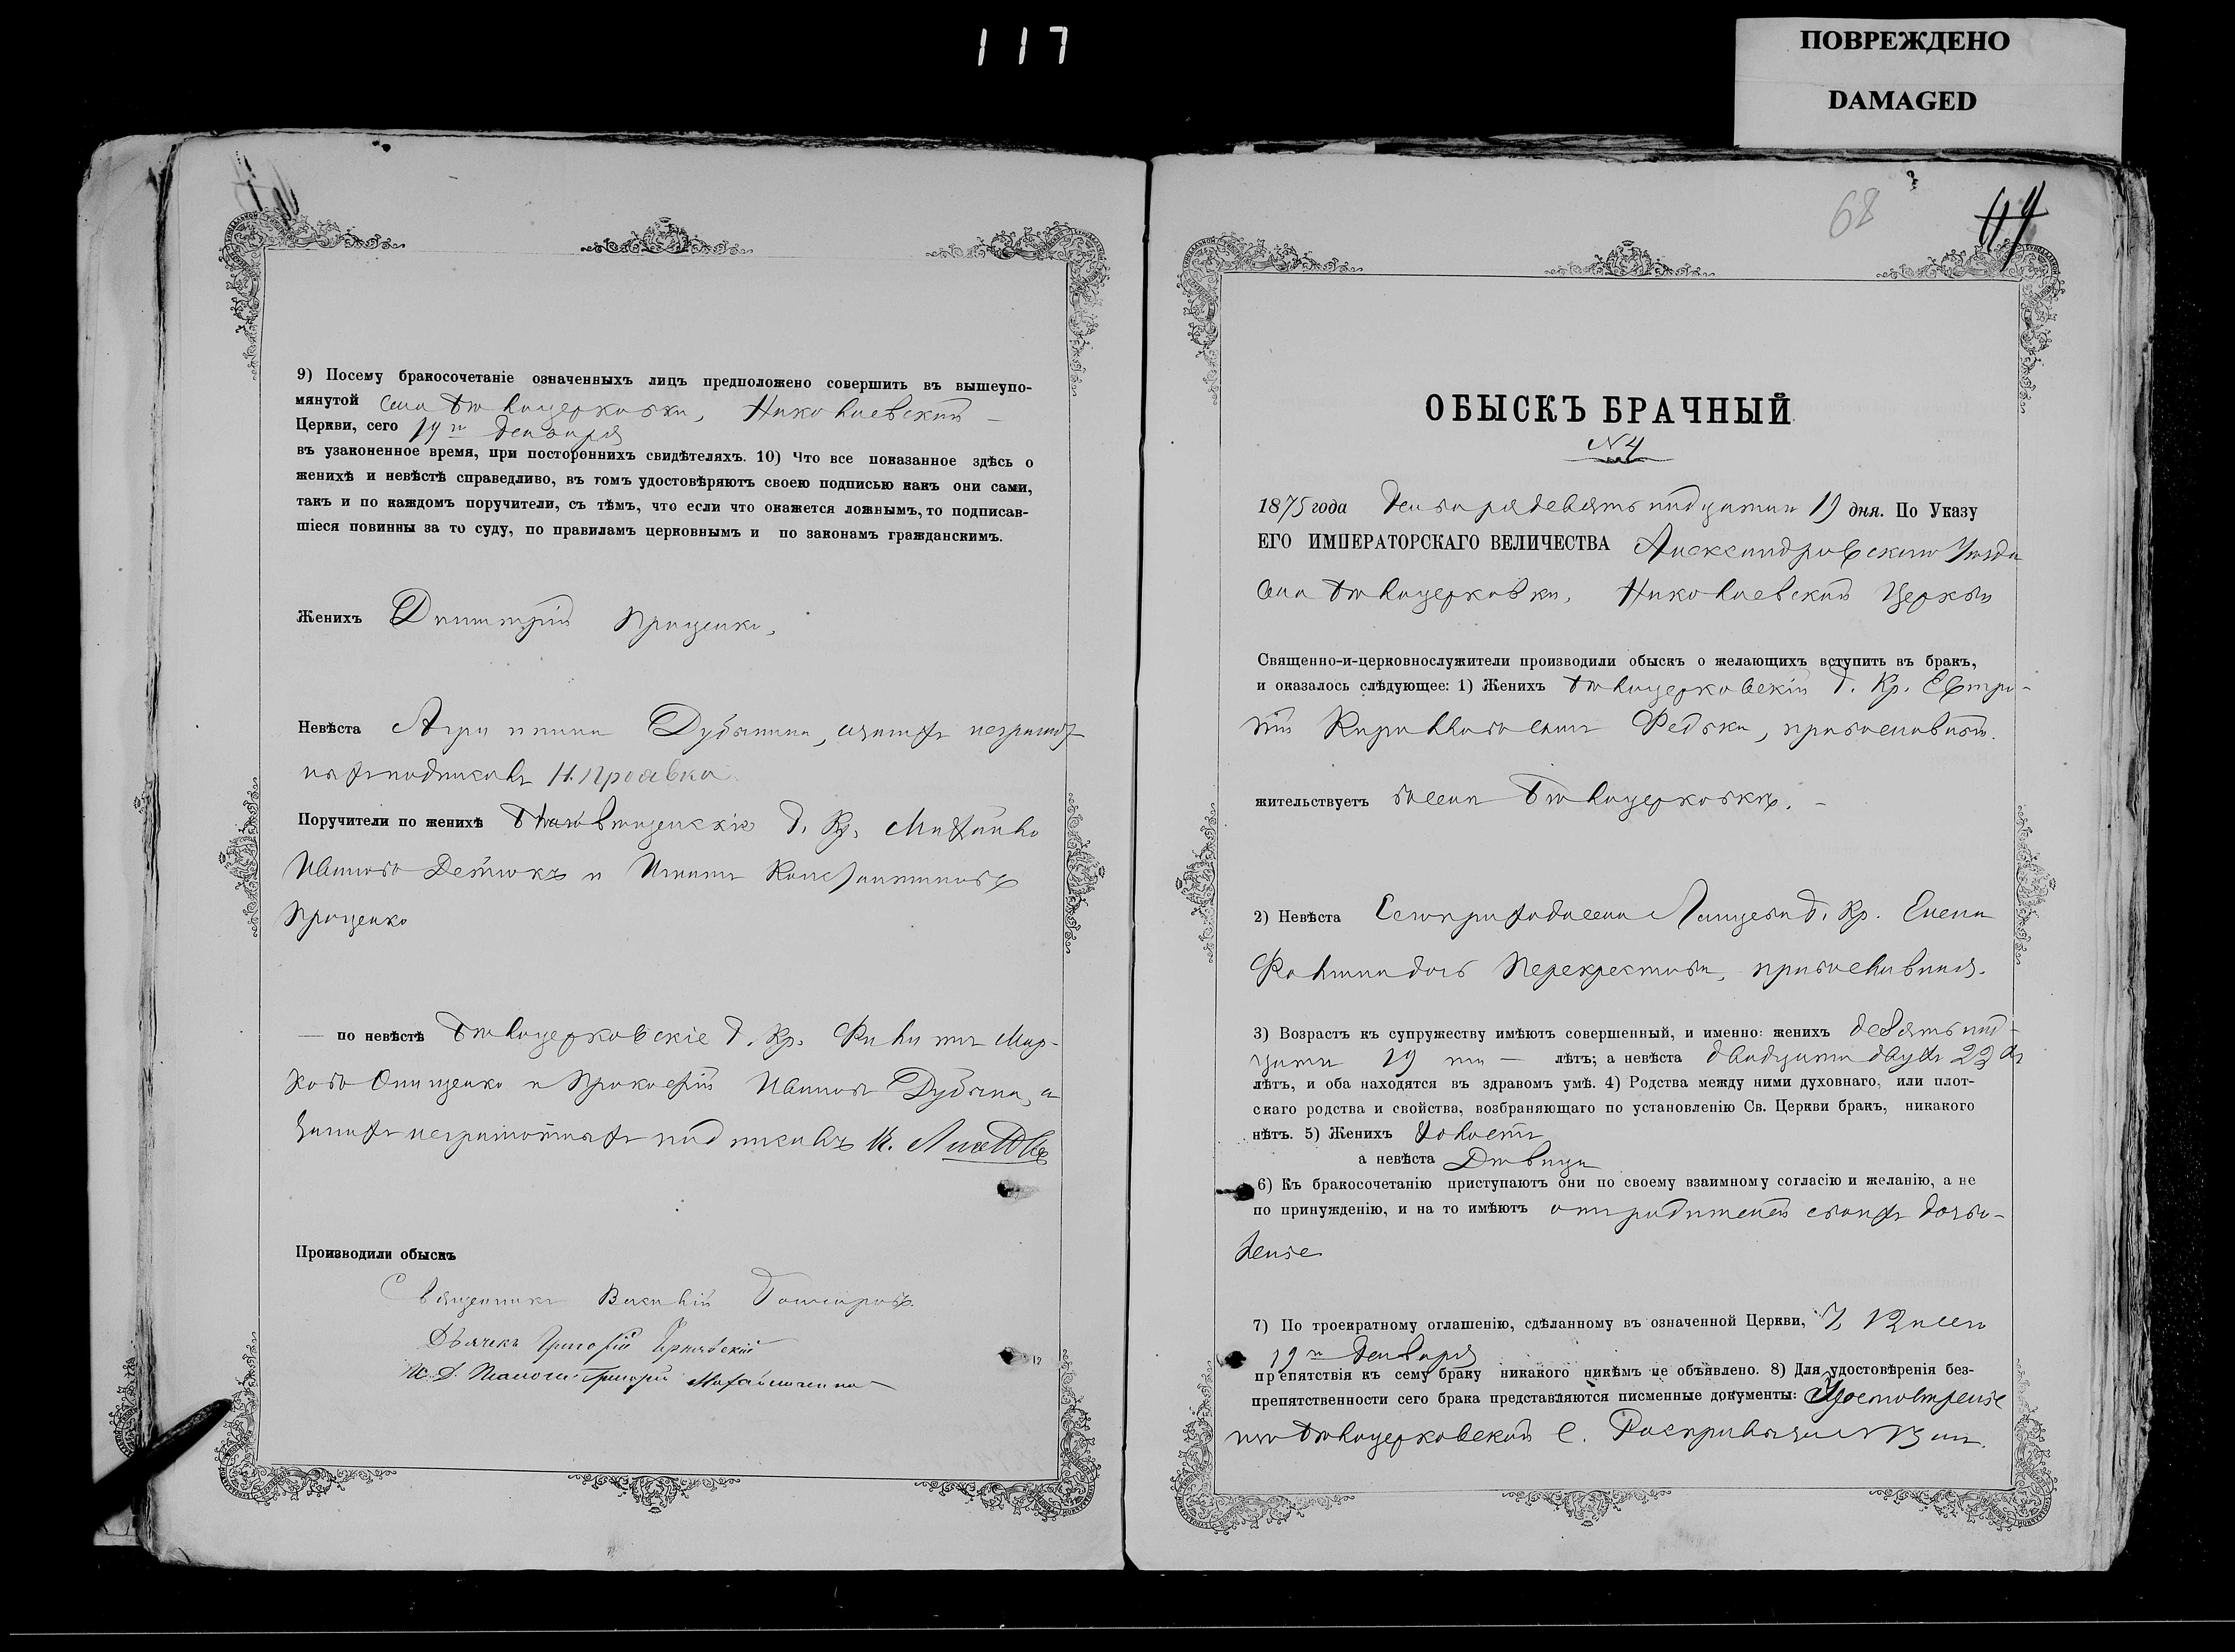 117
ПОВРЕЖДЕНО
DAMAGED
9) Посему бракосочетаніе означенныхъ лицъ предположено совершить въ вышеупо-
мянутой села Бѣлоцерковки, Николаевской
Церкви, сего 19го Января
въ узаконенное время, при постороннихъ свидѣтеляхъ. 10) Что все показанное здѣсь о
женихѣ и невѣстѣ справедливо, въ томъ удостовѣряютъ своею подписью какъ они сами,
такъ и по каждомъ поручители, съ тѣмъ, что если что окажется ложнымъ, то подписав-
шіеся повинны за то суду, по правиламъ церковнымъ и по законамъ гражданскимъ.
Женихъ Димитрій Проценко,
Невѣста Агрипина Дубинина, а за нихъ неграмот-
ныхъ подписалъ Н.
Поручители по женихѣ д. Кр. Михайло
Ивановъ и Игнатъ Константиновъ
Проценко
— по невѣстѣ Бѣлоцерковскіе д. Кр. Филиппъ Мар-
ковъ Онищенко и Прокофій Ивановъ Дубина, а
за нихъ неграмотныхъ подписалъ
Производили обыскъ
Священникъ Василій
Дьячекъ Григорій
И. Д. Григорій
12
68
ОБЫСКЪ БРАЧНЫЙ
№ 4
1875 года Января девятнадцатаго 19 дня. По Указу
ЕГО ИМПЕРАТОРСКАГО ВЕЛИЧЕСТВА Александровскаго Уѣзда
села Бѣлоцерковки, Николаевской Церкви
Священно-и-церковнослужители производили обыскъ о желающихъ вступить въ бракъ,
и оказалось слѣдующее: 1) Женихъ Бѣлоцерковскій д. Кр. Евтро-
пій Кирилловъ сынъ Федько, православный.
жительствуетъ въ селѣ Бѣлоцерковкѣ. —
2) Невѣста д. Кр. Елена
дочь Перекрестова, православная.
3) Возрастъ къ супружеству имѣютъ совершенный, и именно: женихъ девятнад-
цати 19 ти — лѣтъ; а невѣста двадцати двухъ 22 хъ
лѣтъ, и оба находятся въ здравомъ умѣ. 4) Родства между ними духовнаго, или плот-
скаго родства и свойства, возбраняющаго по установленію Св. Церкви бракъ, никакого
нѣтъ. 5) Женихъ холостъ
а невѣста Дѣвица
6) Къ бракосочетанію приступаютъ они по своему взаимному согласію и желанію, а не
по принужденію, и на то имѣютъ отъ родителей своихъ дозво-
леніе
7) По троекратному оглашенію, сдѣланному въ означенной Церкви, 7, 12 и
19го Января
препятствія къ сему браку никакого никѣмъ не объявлено. 8) Для удостовѣренія без-
препятственности сего брака представляются писменные документы: Удостовѣреніе
изъ Бѣлоцерковской С. Расправы за № 13 мъ.